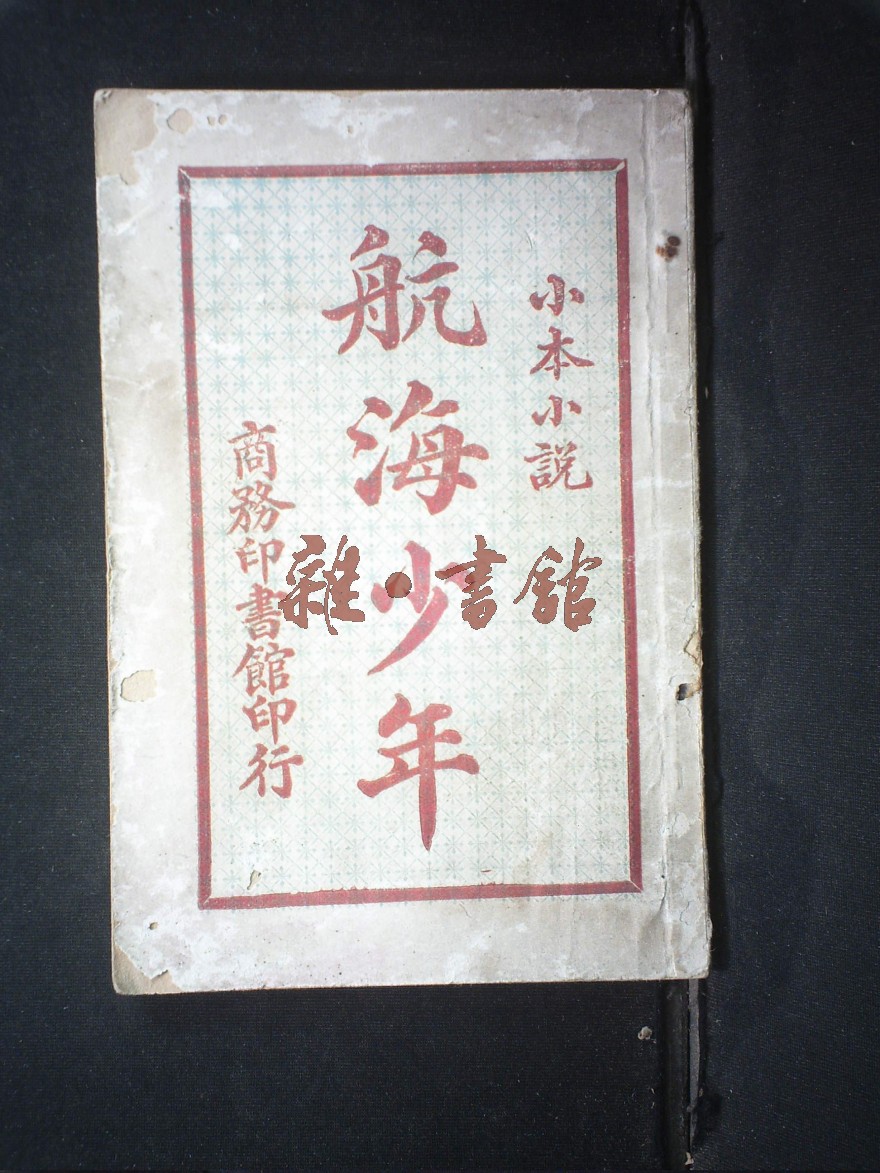 小本小説
航海少年
商務印書館印行
雜·書館